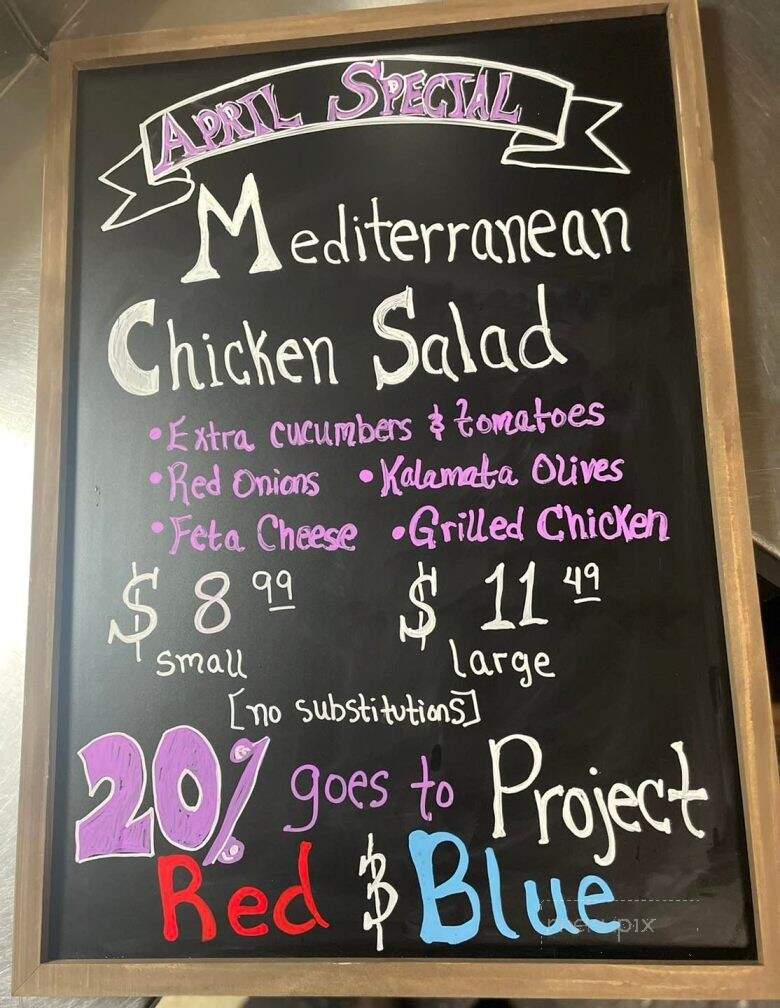 APRIL SPECIAL
Mediterranean
Chicken Salad
• Extra cucumbers & tomatoes
• Red Onions • Kalamata Olives
• Feta Cheese • Grilled Chicken
$ 8 99 $ 11 49
small large
[no substitutions]
20% goes to Project
Red & Blue
menupix